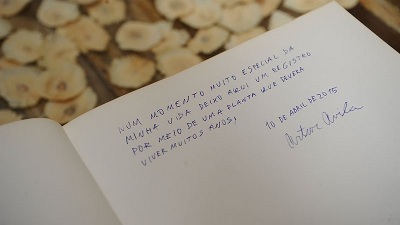 NUM MOMENTO MUITO ESPECIAL DA
MINHA VIDA DEIXO AQUI UM REGISTRO
POR MEIO DE UMA PLANTA QUE DEVERÁ
VIVER MUITOS ANOS,
10 DE ABRIL DE 2015
Artur Avila